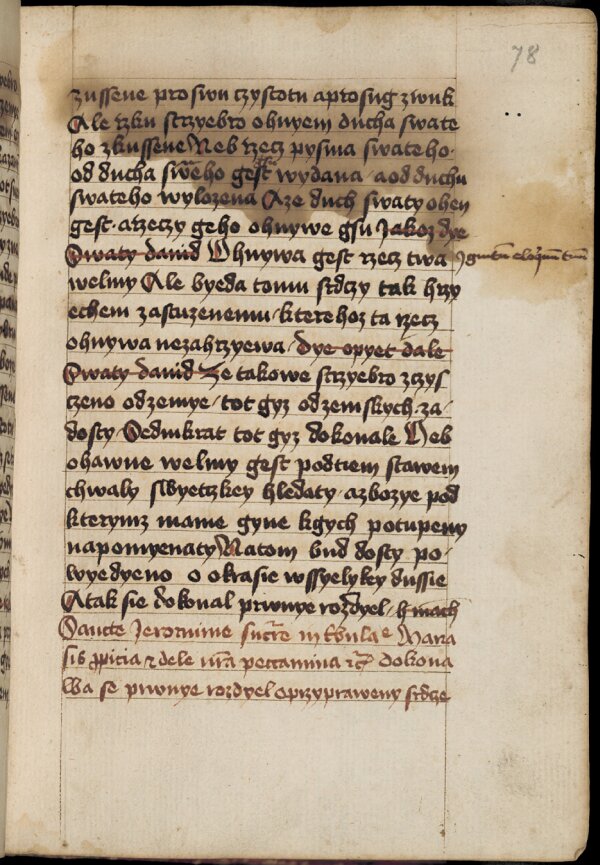 78
zussene pro swu czystotu a pro swg zwuk
Ale rzku strzyebro ohnyem ducha swate
ho zkussene Neb rzecz pysma swateho
od ducha sweho gest wydana a od duchu
swateho wylozena A ze duch swaty ohen
gest a rzeczy geho ohnywe gsu Jakoz dye
Swaty dauid Ohnywa gest rzecz twa
welmy Ale byeda tomu srdczy tak hrzy
echem zastuzenemu kterehoz ta rzecz
ohnywa nezahrzyewa dye opyet dale
Swaty dauid ze takowe strzyebro zczys
czeno od zemye tot gyz od zemskych za
dosty Sedmkrat tot gyz dokonale Neb
ohawne welmy gest podtiem stawem
chwaly swyetzkey hledaty a zbozye pod
kterymz mame gyne kgych potupeny
napomyenaty Natom bud dosty po
wyedyeno o okrasie wssyelykey dussie
A tak sie dokonal prwnye rozdyel
Sancte Jeronime Maria
sis propicia et dele peccamina dokona
wa se prwnye rozdyel o przypraweny srdcze